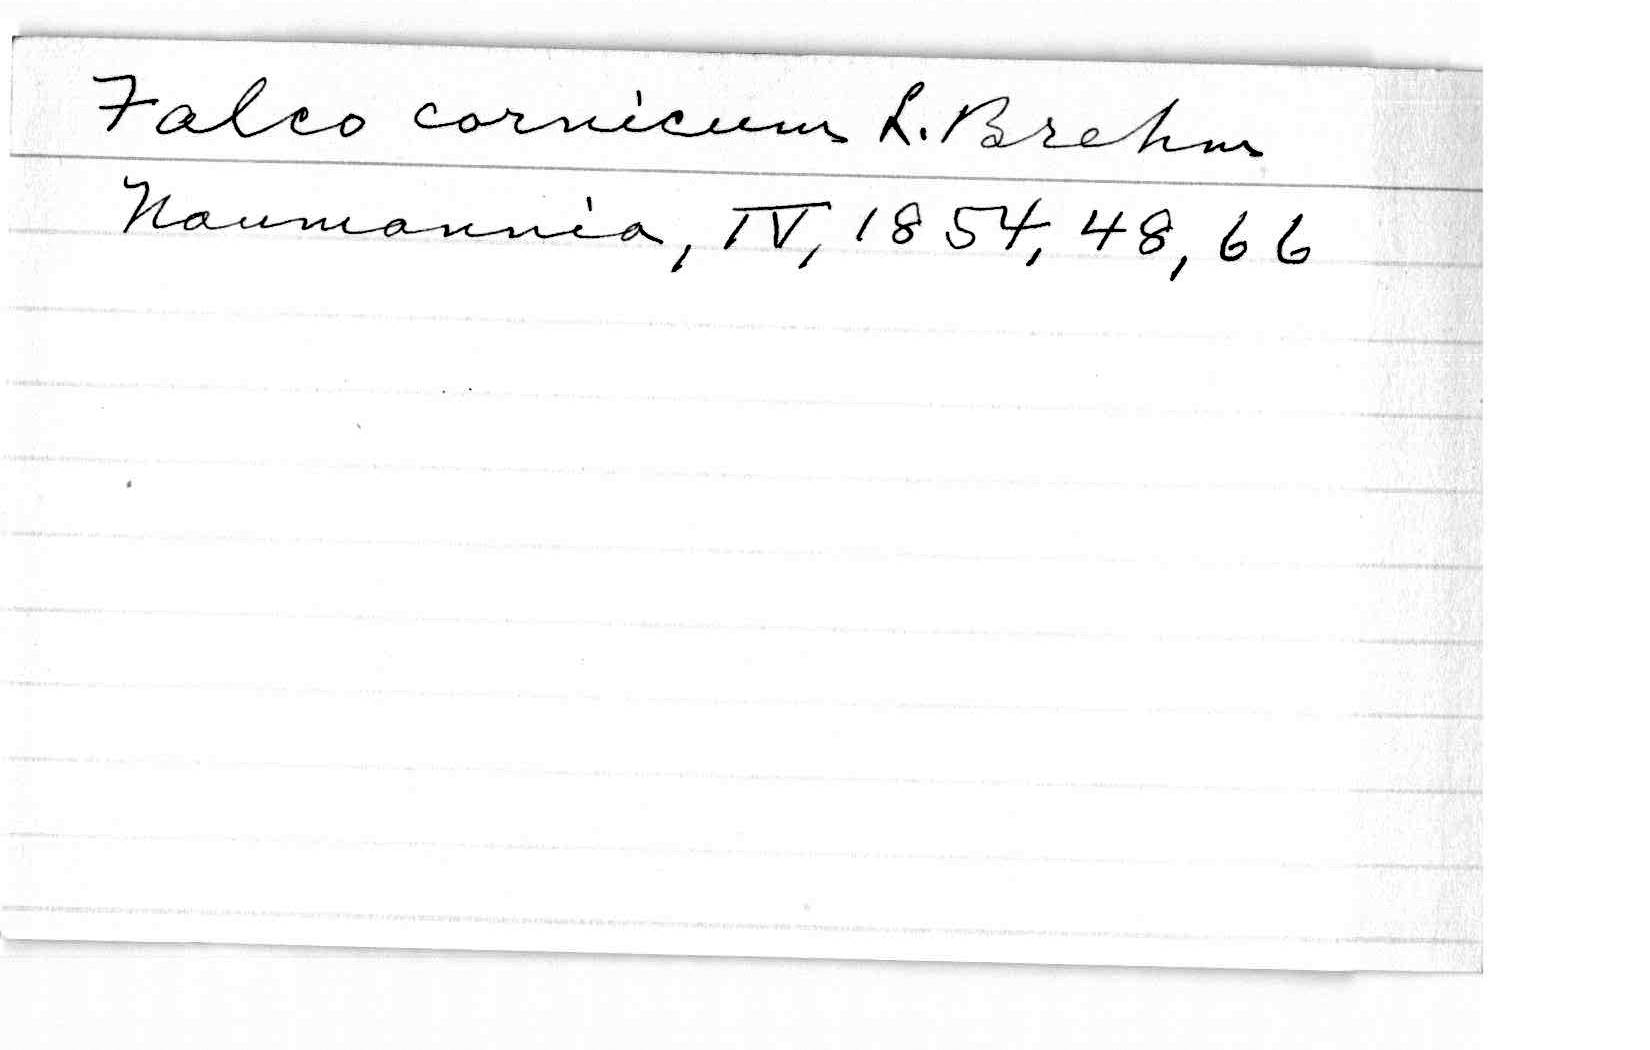 Falco cornicum L. Brehm
Naumannia, IV, 1854, 48, 66